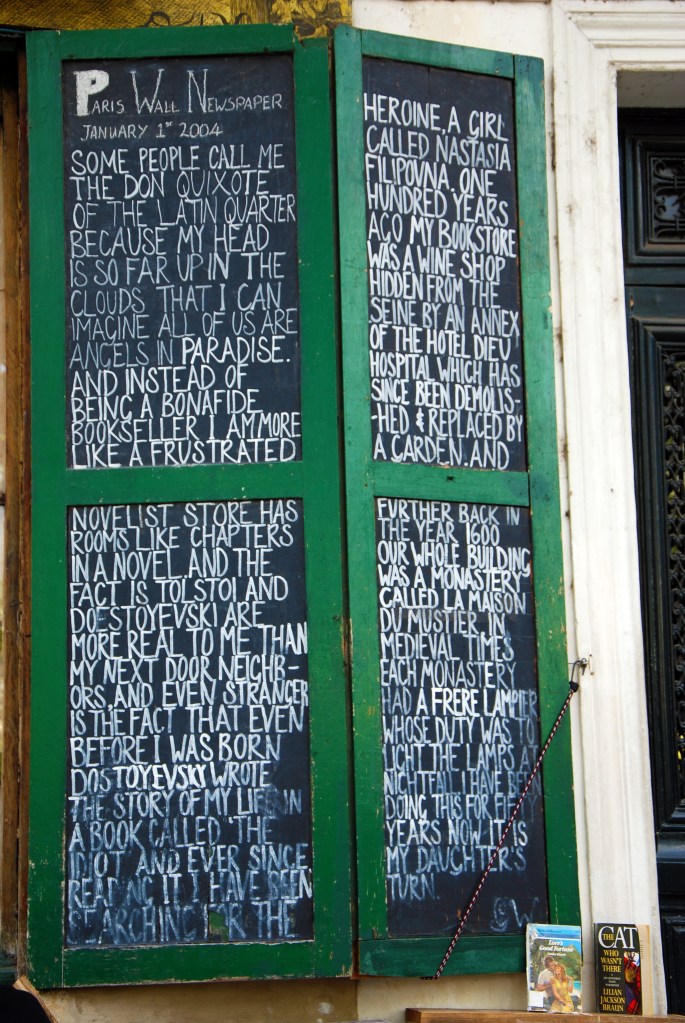 PARIS WALL NEWSPAPER
JANUARY 1ST 2004
SOME PEOPLE CALL ME
THE DON QUIXOTE
OF THE LATIN QUARTER
BECAUSE MY HEAD
IS SO FAR UP IN THE
CLOUDS THAT I CAN
IMAGINE ALL OF US ARE
ANGELS IN PARADISE.
AND INSTEAD OF
BEING A BONAFIDE
BOOKSELLER I AM MORE
LIKE A FRUSTRATED
NOVELIST STORE HAS
ROOMS LIKE CHAPTERS
IN A NOVEL AND THE
FACT IS TOLSTOI AND
DOESTOYEVSKI ARE
MORE REAL TO ME THAN
MY NEXT DOOR NEIGHB-
ORS, AND EVEN STRANGER
IS THE FACT THAT EVEN
BEFORE I WAS BORN
DOSTOYEVSKY WROTE
THE STORY OF MY LIFE IN
A BOOK CALLED 'THE
IDIOT' AND EVER SINCE
READING IT I HAVE BEEN
SEARCHING FOR THE
HEROINE, A GIRL
CALLED NASTASIA
FILIPOVNA. ONE
HUNDRED YEARS
AGO MY BOOKSTORE
WAS A WINE SHOP
HIDDEN FROM THE
SEINE BY AN ANNEX
OF THE HOTEL DIEU
HOSPITAL WHICH HAS
SINCE BEEN DEMOLIS-
-HED & REPLACED BY
A GARDEN. AND
FURTHER BACK IN
THE YEAR 1600
OUR WHOLE BUILDING
WAS A MONASTERY
CALLED LA MAISON
DU MUSTIER. IN
MEDIEVAL TIMES
EACH MONASTERY
HAD A FRERE LAMPIER
WHOSE DUTY WAS TO
LIGHT THE LAMPS AT
NIGHTFALL I HAVE BEEN
DOING THIS FOR FIFTY
YEARS NOW IT IS
MY DAUGHTER'S
TURN.
GW
Love's
Good Fortune
THE
CAT
WHO
WASN'T
THERE
LILIAN
JACKSON
BRAUN